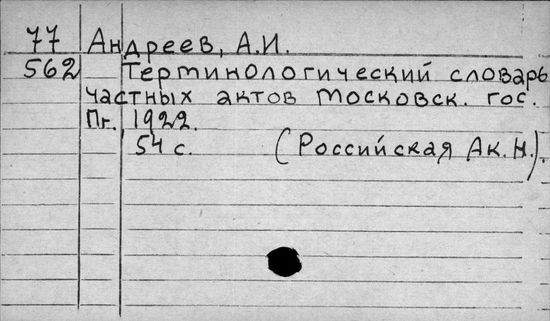 77 Андреев, А.И.
562 Терминологический словарь
частных актов Московск. гос.
Пг., 1922.
54 с. (Российская Ак. Н.).